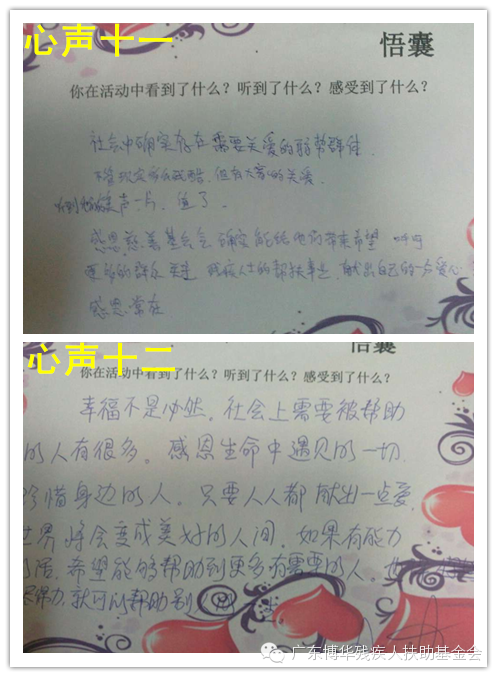 心声十一
悟囊
你在活动中看到了什么？听到了什么？感受到了什么？
社会中确实存在需要关爱的弱帮群体.
不管现实多么残酷，但有大家的关爱.
听到的笑声一片，值了.
感恩慈善基金会 确实能给他们带来希望 呼吁
更多的群众 关注 残疾人士的帮扶事业，献出自己的一分爱心
感恩常在
心声十二
悟囊
你在活动中看到了什么？听到了什么？感受到了什么？
幸福不是必然。社会上需要被帮助
的人有很多。感恩生命中遇见的一切.
珍惜身边的人。只要人人都献出一点爱.
世界将会变成美好的人间。如果有能力
的话，希望能够帮助到更多有需要的人。
就可以帮助别人
广东博华残疾人扶助基金会